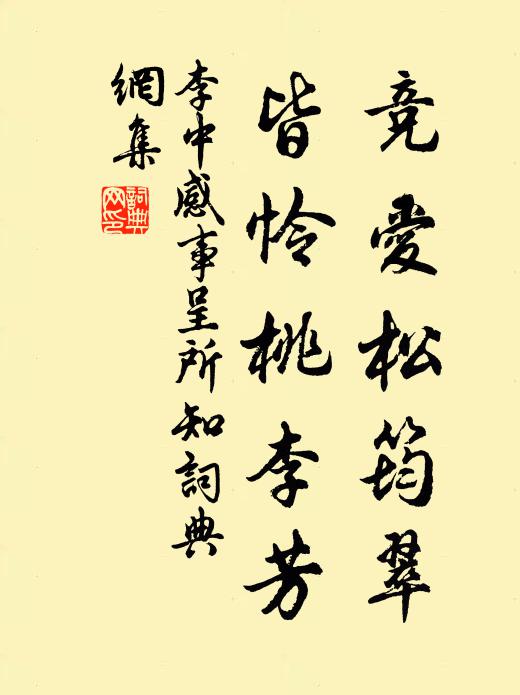 竞愛松筠翠
皆怜桃李芳
李中感事呈所知詞典
網集
詞典網印